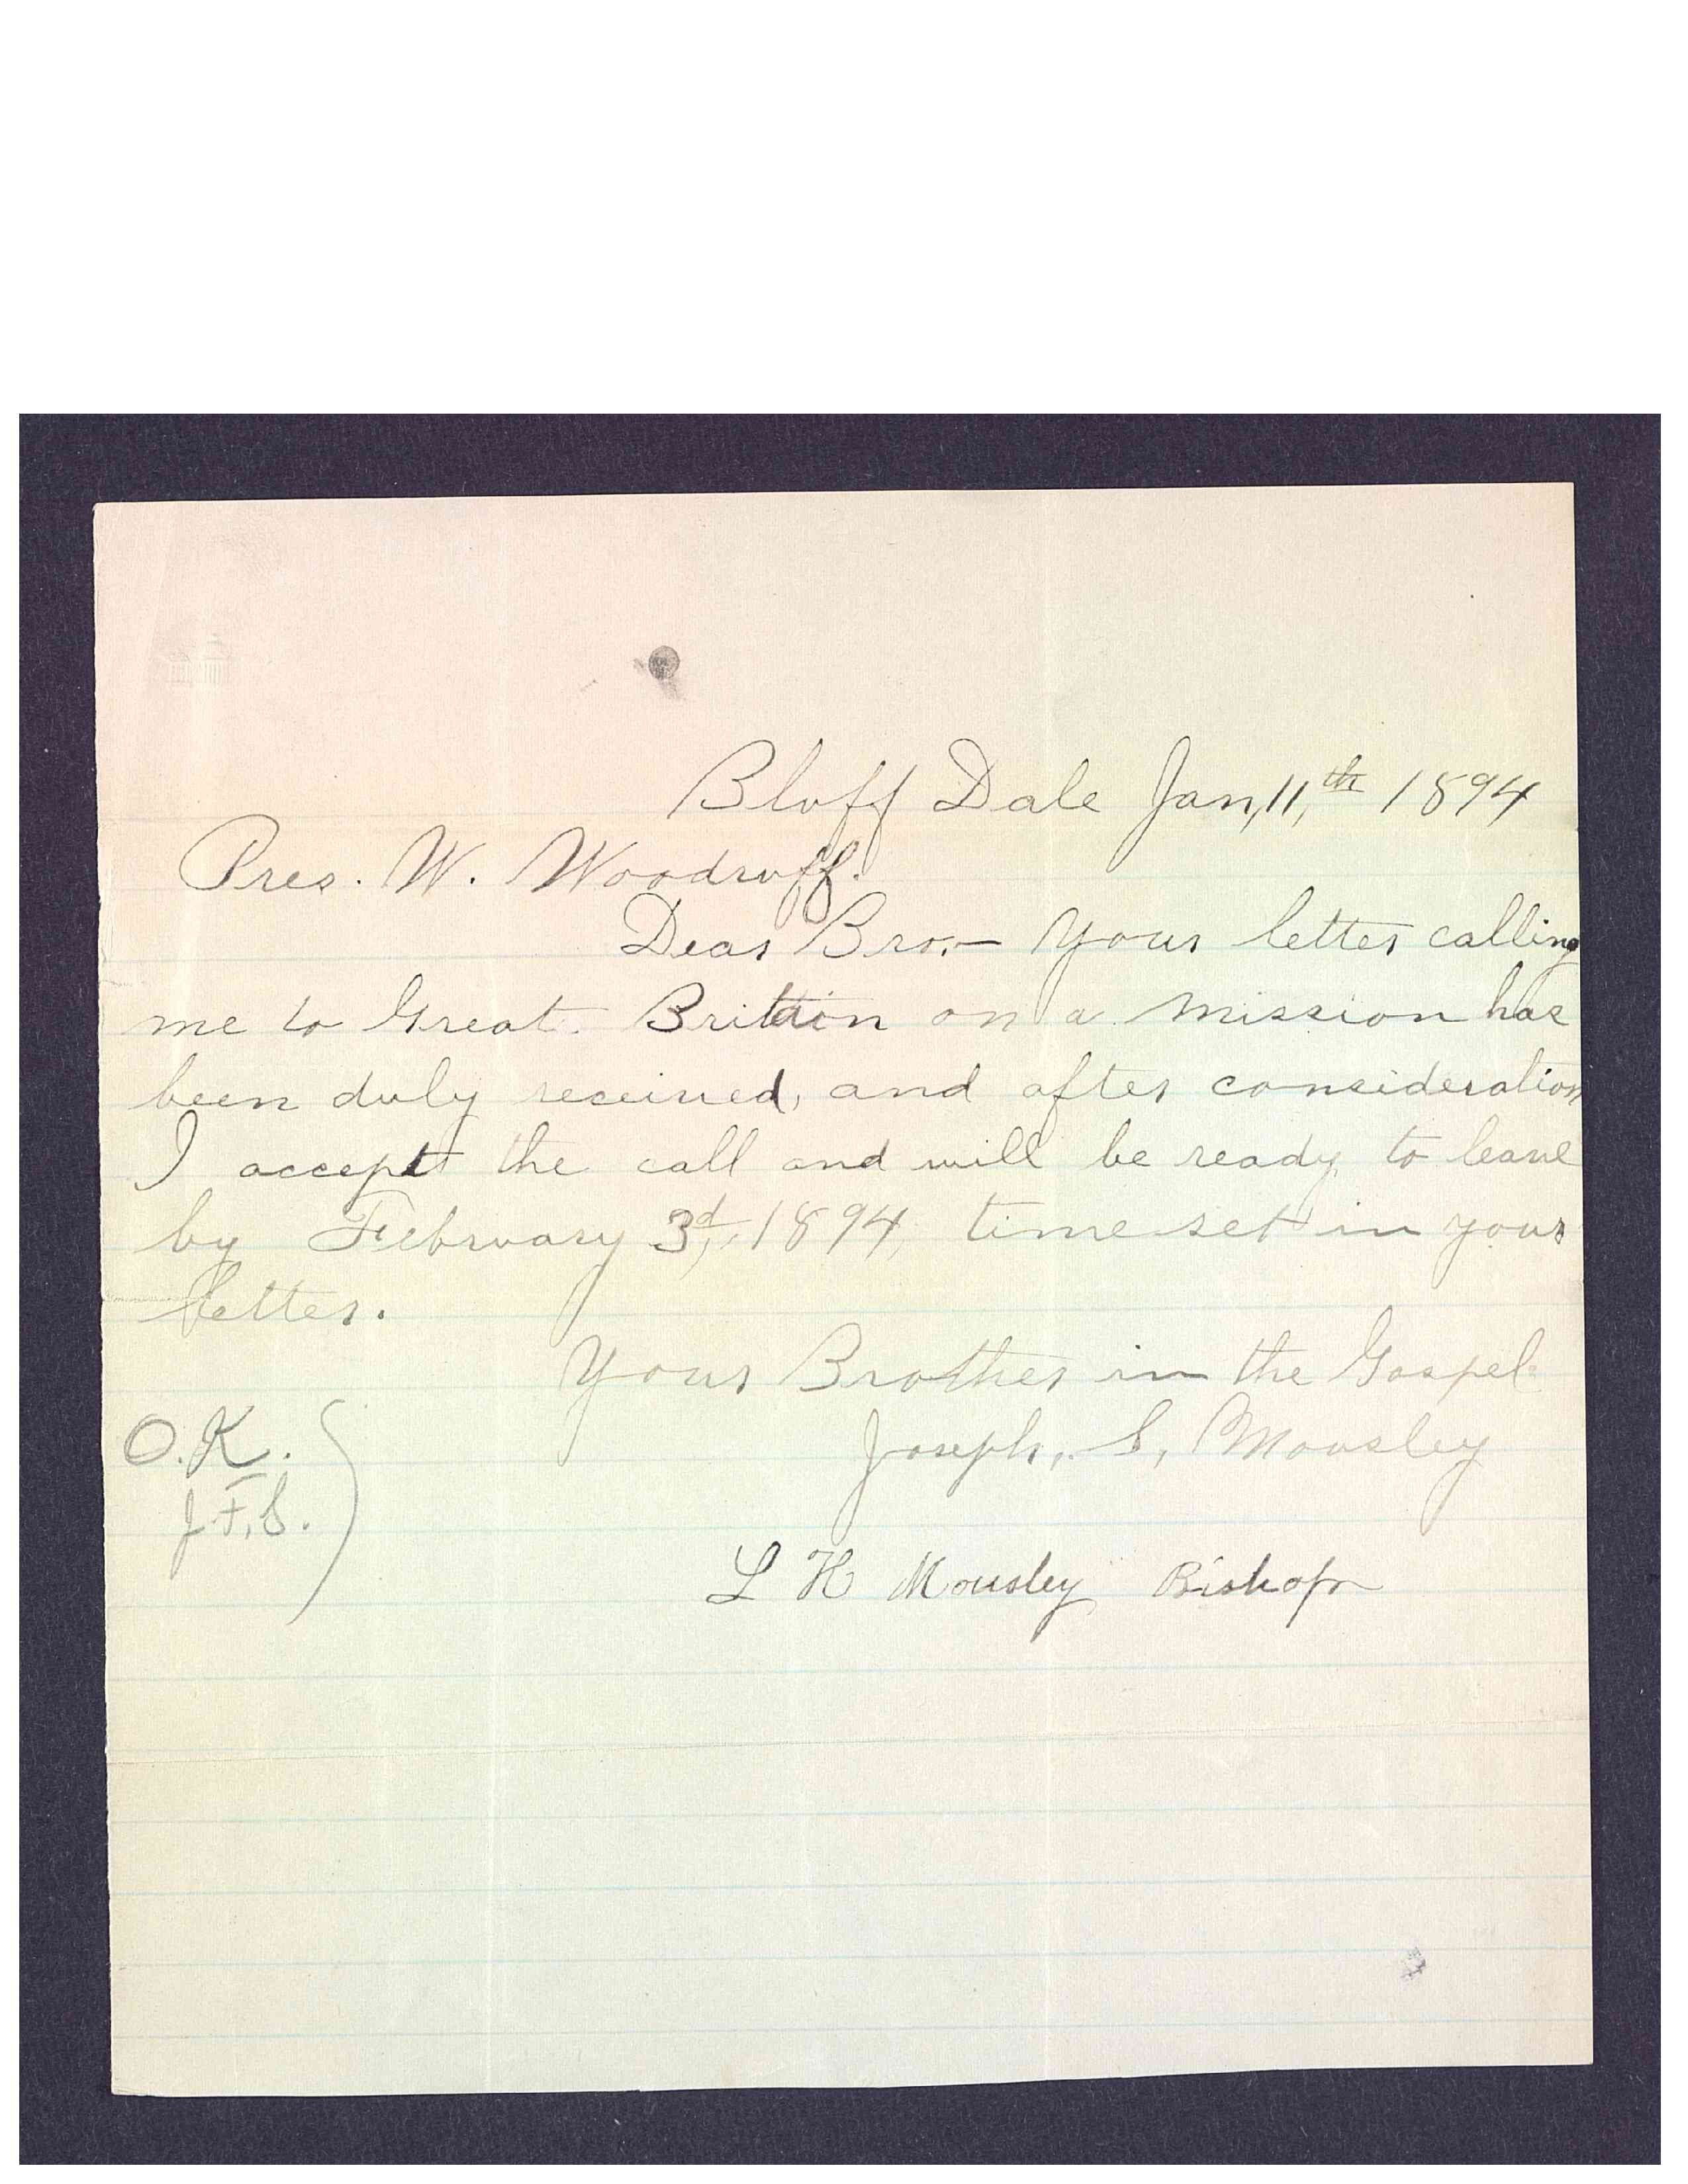 Bluff Dale Jan, 11, th 1894
Pres. W. Woodruff.
Dear Bro.— Your letter calling
me to Great Brittain on a mission has
been duly received, and after consideration
I accept the call and will be ready to leave
by February 3d, 1894, time set in your
letter.
Your Brother in the Gospel
Joseph, S, Mousley
O.K.
J.F.S.
L H Mousley Bishop